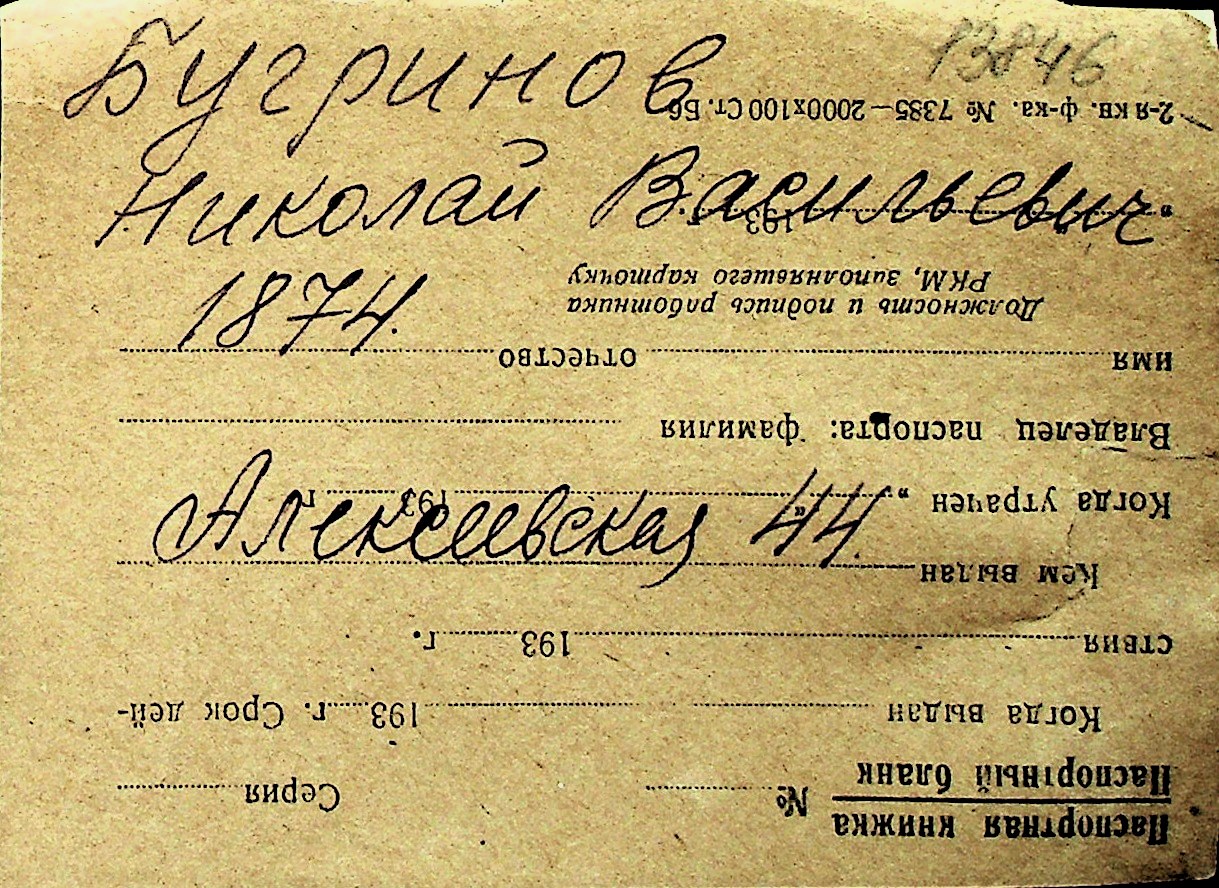 13846
Бугринов
Николай Васильевич
1874.
Алексеевская 44.
Паспортная книжка
Паспортный бланк
№ Серия
Когда выдан 193 г. Срок дей-
ствия 193 г.
Кем выдан
Когда утрачен „ “ 193 г.
Владелец паспорта: фамилия
имя отчество
Должность и подпись работника
РКМ, заполнявшего карточку
„ 193 г.
2-я кв. ф-ка. № 7385—2000х100 Ст. Б6